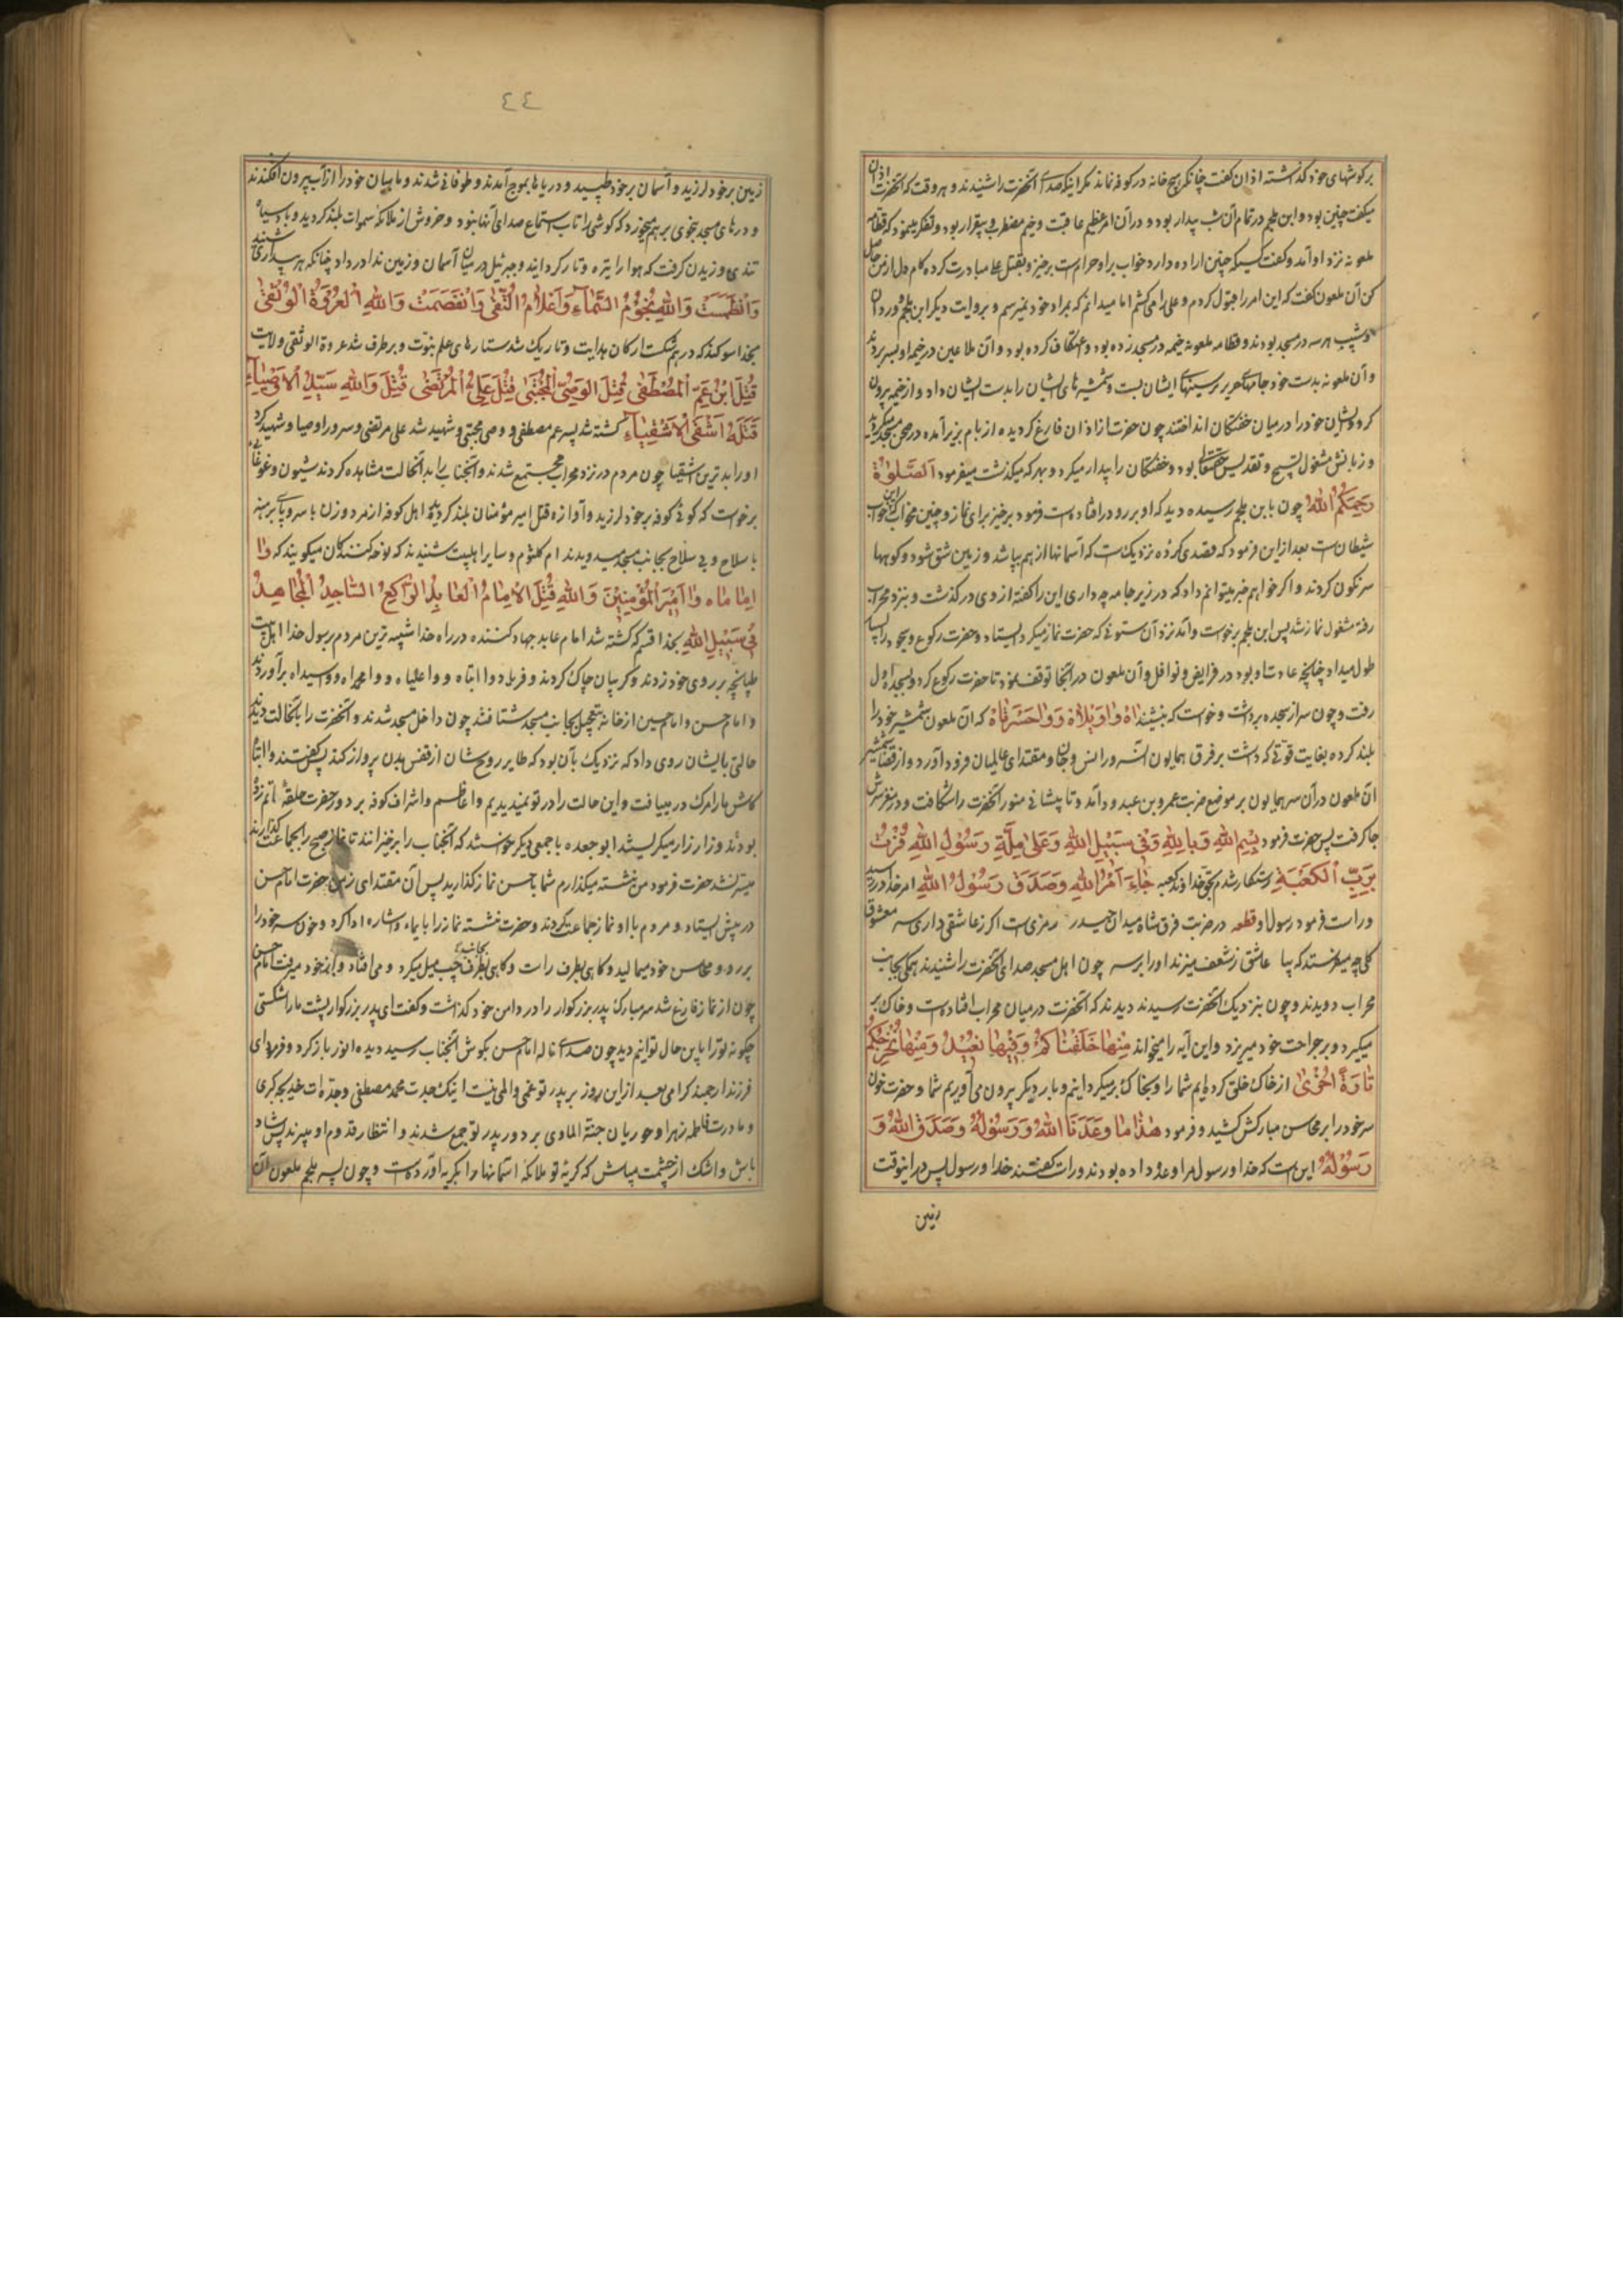 برکوشهای خود کذاشته اذان کفت چنانکه هیچ خانه در کوفه نماند مکر اینکه صدای آنحضرت را شنیدند و هر وقت که آنحضرت اذان
میکفت چنین بود و ابن ملجم در تمام آن شب بیدار بود و در آن امر عظیم عاقبت وخیم مضطرب و بیقرار بود و تفکر مینمود که قطامه
ملعونه نزد او آمد و کفت کسیکه چنین اراده دارد خواب بر او حرامست برخیز و بقتل علی مبادرت کرده کام دل از من حاصل
کن آن ملعون کفت که این امر را قبول کردم و علی را می کشم اما میدانم که بمراد خود نمیرسم و بروایت دیکر ابن ملجم و وردان
و شبیب هر سه در مسجد بودند و قطامه ملعونه خیمه در مسجد زده بود و اعتکاف کرده بود و آن ملاعین در خیمه او بسر بردند
و آن ملعونه بدست خود جامهای حریر بر سینهای ایشان بست و شمشیرهای ایشان را بدست ایشان داد و از خیمه بیرون
کرد و ایشان خود را در میان خفتکان انداختند چون حضرت از اذان فارغ کردیده از بام بزیر آمده در صحن مسجد میکردید
و زبانش مشغول تسبیح و تقدیس حقتعالی بود و خفتکان را بیدار میکرد و بهر که میکذشت میفرمود اَلصَّلوٰةُ
رَحِمَکُمُ اللهُ چون بابن ملجم رسیده دید که او بر رو در افتاده است فرمود برخیز برای نماز و چنین مخواب که این خواب
شیطان است بعد از این فرمود که قصدی کرده نزدیک است که آسمانها از هم بپاشد و زمین شق شود و کوهها
سرنکون کردند و اکر خواهم خبر میتوانم داد که در زیر جامه چه داری این را کفته از وی در کذشت و بنزد محراب
رفته مشغول نماز شد پس ابن ملجم برخواست و آمد نزد آن ستونی که حضرت نماز میکرد ایستاد و حضرت رکوع و سجود را بسیار
طول میداد چنانچه عادت او بود در فرایض و نوافل و آن ملعون در آنجا توقف نمود تا حضرت رکوع کرد و بسجده اول
رفت و چون سر از سجده برداشت و خواست که بنشیند اٰهْ وٰا وَیْلٰاهْ وَوٰا حَسْرَتٰاهْ که آن ملعون شمشیر خود را
بلند کرده بغایت قوتی که داشت بر فرق همایون آن سرور انس و جان و مقتدای عالمیان فرود آورد و از قضا شمشیر
آن ملعون در آن سر همایون بر موضع ضربت عمرو بن عبدود آمد و تا پیشانی منور آنحضرت را شکافت و در مغز سرش
جا کرفت پس حضرت فرمود بِسْمِ اللهِ وَبِاللهِ وَفی سَبیلِ اللهِ وَعَلیٰ مِلَّةِ رَسُولِ اللهِ فُزْتُ
بِرَبِّ الْکَعْبَةِ رستکار شدم بحق خداوند کعبه جٰاءَ اَمْرُ اللهِ وَصَدَقَ رَسُولُ اللهِ امر خدا در رسید
و راست فرمود رسول او قطعه در ضربت فرق شاه میدان حیدر رمزی است اکر ز عاشقی داری سر معشوق
کلی چه میفرستد که بیا عاشق ز شعف میزند او را بر سر چون اهل مسجد صدای آنحضرت را شنیدند همکی بجانب
محراب دویدند و چون بنزدیک آنحضرت رسیدند دیدند که آنحضرت در میان محراب افتاده است و خاک بر
میکیرد و بر جراحت خود میریزد و این آیه را میخواند مِنْهٰا خَلَقْنٰاکُمْ وَفیهٰا نُعیدُکُمْ وَمِنْهٰا نُخْرِجُکُمْ
تٰارَةً اُخْریٰ از خاک خلق کرده ایم شما را و بخاک برمیکردانیم و بار دیکر بیرون می آوریم شما و حضرت خون
سر خود را بر محاسن مبارکش کشید و فرمود هٰذٰا مٰا وَعَدَنَا اللهُ وَرَسُولُهُ وَصَدَقَ اللهُ وَ
رَسُولُهُ این است که خدا و رسول مرا وعده داده بودند و راست کفتند خدا و رسول پس در اینوقت
زمین
٤٤
زمین بر خود لرزید و آسمان بر خود طپیسید و دریاها بموج آمدند و طوفانی شدند و ماهیان خود را از آب بیرون افکندند
و درهای مسجد بنحوی بر هم میخورد که کوشی را تاب استماع صدای آنها نبود و خروش از ملائکه سموات بلند کردید و باد سیاه
تندی وزیدن کرفت که هوا را تیره و تار کردانید و جبرئیل در میان آسمان و زمین ندا در داد چنانکه هر بیداری شنید
وَانْطَمَسَتْ وَاللهِ نُجُومُ السَّمٰاءِ وَاَعْلٰامُ التُّقیٰ وَانْفَصَمَتْ وَاللهِ الْعُرْوَةُ الْوُثْقیٰ
بخدا سوکند که در هم شکست ارکان هدایت و تاریک شد ستارهای علم نبوت و برطرف شد عروة الوثقی ولایت
قُتِلَ ابْنُ عَمِّ الْمُصْطَفیٰ قُتِلَ الْوَصِیُّ الْمُجْتَبیٰ قُتِلَ عَلِیُّ الْمُرْتَضیٰ قُتِلَ وَاللهِ سَیِّدُ الْاَوْصِیٰاءِ
قَتَلَهُ اَشْقَی الْاَشْقِیٰاءِ کشته شد پسر عم مصطفی و وصی مجتبی و شهید شد علی مرتضی و سرور اوصیا و شهید کرد
او را بدترین اشقیا چون مردم در نزد محراب مجتمع شدند و آنجناب را بدانحالت مشاهده کردند شیون و غوغا
برخواست که کوئی کوفه بر خود لرزید و آوازه قتل امیر مؤمنان بلند کردید اهل کوفه از مرد و زن با سر و پای برهنه
با سلاح و بی سلاح بجانب مسجد میدویدند ام کلثوم و سایر اهلبیت شنیدند که نوحه کنندکان میکویند که وٰا
اِمٰامٰاه وٰا اَمیرَ الْمُؤْمِنینَ وَاللهِ قُتِلَ الْاِمٰامُ الْعٰابِدُ الرّٰاکِعُ السّٰاجِدُ الْمُجٰاهِدُ
فی سَبیلِ اللهِ بخدا قسم که کشته شد امام عابد جهاد کننده در راه خدا شبیه ترین مردم برسول خدا اهل بیت
طپانچه بر روی خود زدند و کریبان چاک کردند و فریاد وا ابتاه و وا علیاه و وا محمداه و وا سیداه برآوردند
و امام حسن و امام حسین از خانه بتعجیل بجانب مسجد شتافتند چون داخل مسجد شدند و آنحضرت را بآنحالت دیدند
حالتی بایشان روی داد که نزدیک بآن بود که طایر روحشان از قفس بدن پرواز کند پس کفتند وا ابتاه
کاش ما را مرک در مییافت و این حالت را در تو نمیدیدیم و اعاظم و اشراف کوفه بر دور حضرت حلقه ماتم زده
بودند و زار زار میکریستند ابو جعده با جمعی دیکر خواستند که آنجناب را برخیزانند تا نماز صبح را بجماعت کذارند
میسر نشد حضرت فرمود من نشسته میکذارم شما با حسن نماز کذارید پس آن مقتدای زمن حضرت امام حسن
در پیش ایستاد و مردم با او نماز جماعت کردند و حضرت نشسته نماز را بایماء و اشاره ادا کرد و خون سر خود را
بر رو و محاسن خود میمالید و کاهی بطرف راست و کاهی بطرف چپ میل میکرد و می افتاد و از خود میرفت امام حسن
چون از نماز فارغ شد سر مبارک پدر بزرکوار را در دامن خود کذاشت و کفت ای پدر بزرکوار پشت ما را شکستی
چکونه تو را باین حال توانیم دید چون صدای ناله امام حسن بکوش آنجناب رسید دیده انور باز کرد و فرمود ای
فرزند ارجمند کرامی بعد از این روز بر پدر تو غمی و المی نیست اینک جدت محمد مصطفی و جده ات خدیجه کبری
و مادرت فاطمه زهرا و حوریان جنة الماوی بر دور پدر تو جمع شدند و انتظار قدوم او میبرند پس شاد
باش و اشک از چشمت مپاش که کریه تو ملائکه آسمانها را بکریه آورده است و چون پسر ملجم ملعون آن